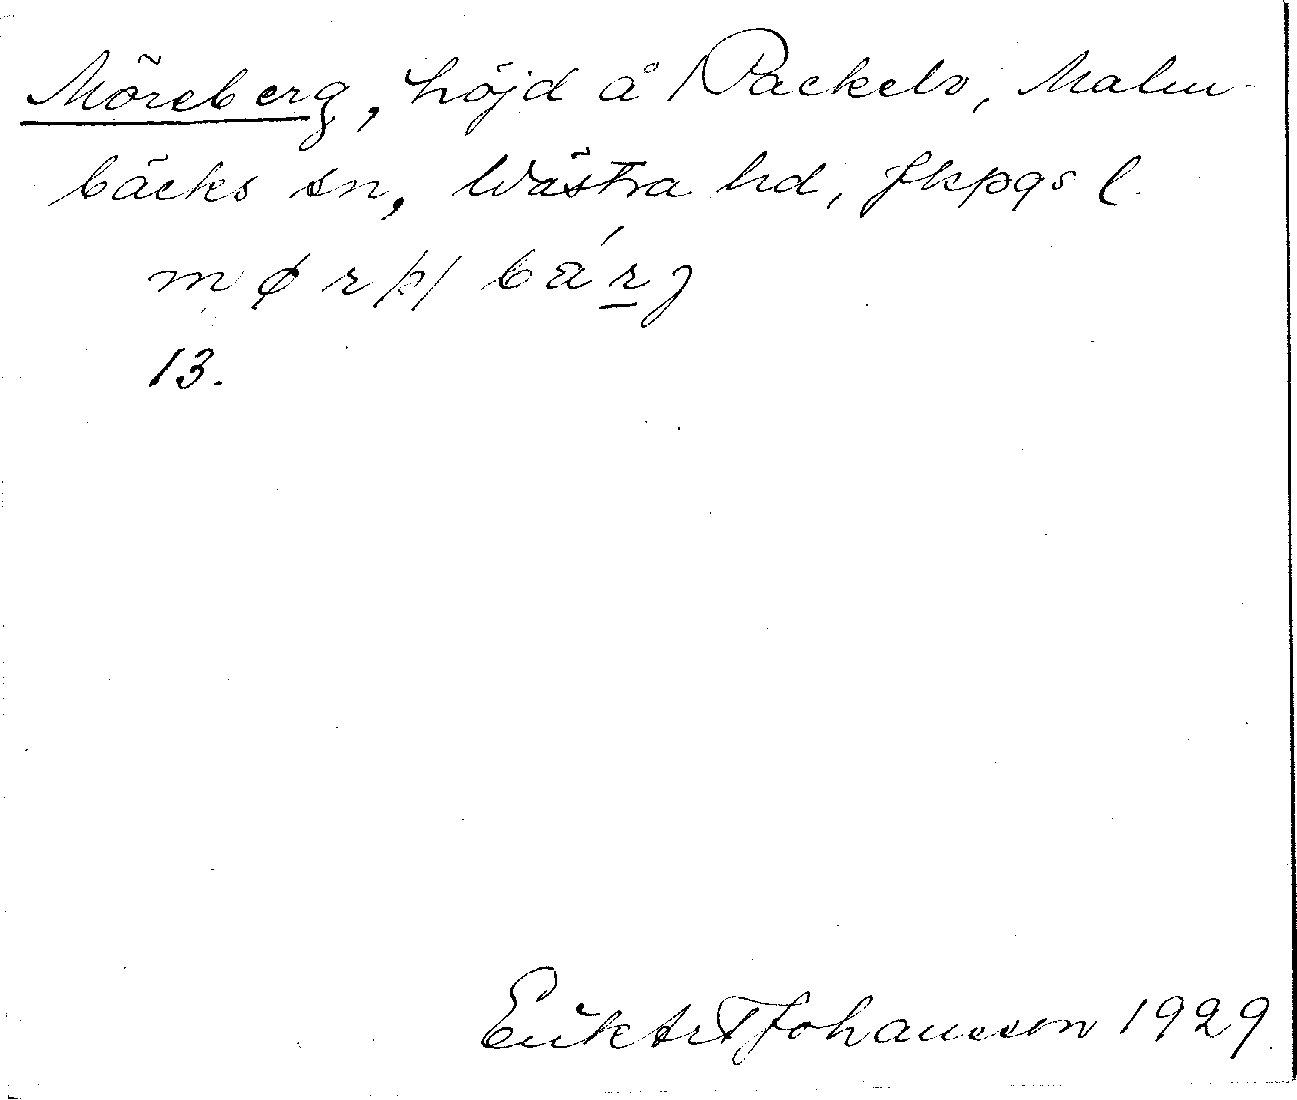 Möreberg, höjd å Packelv, Malm-
bäcks sn, Västra hd, Jkpgs l.
m ø r þ/ b ä́ r j
13.
Erik Art Johansson 1929